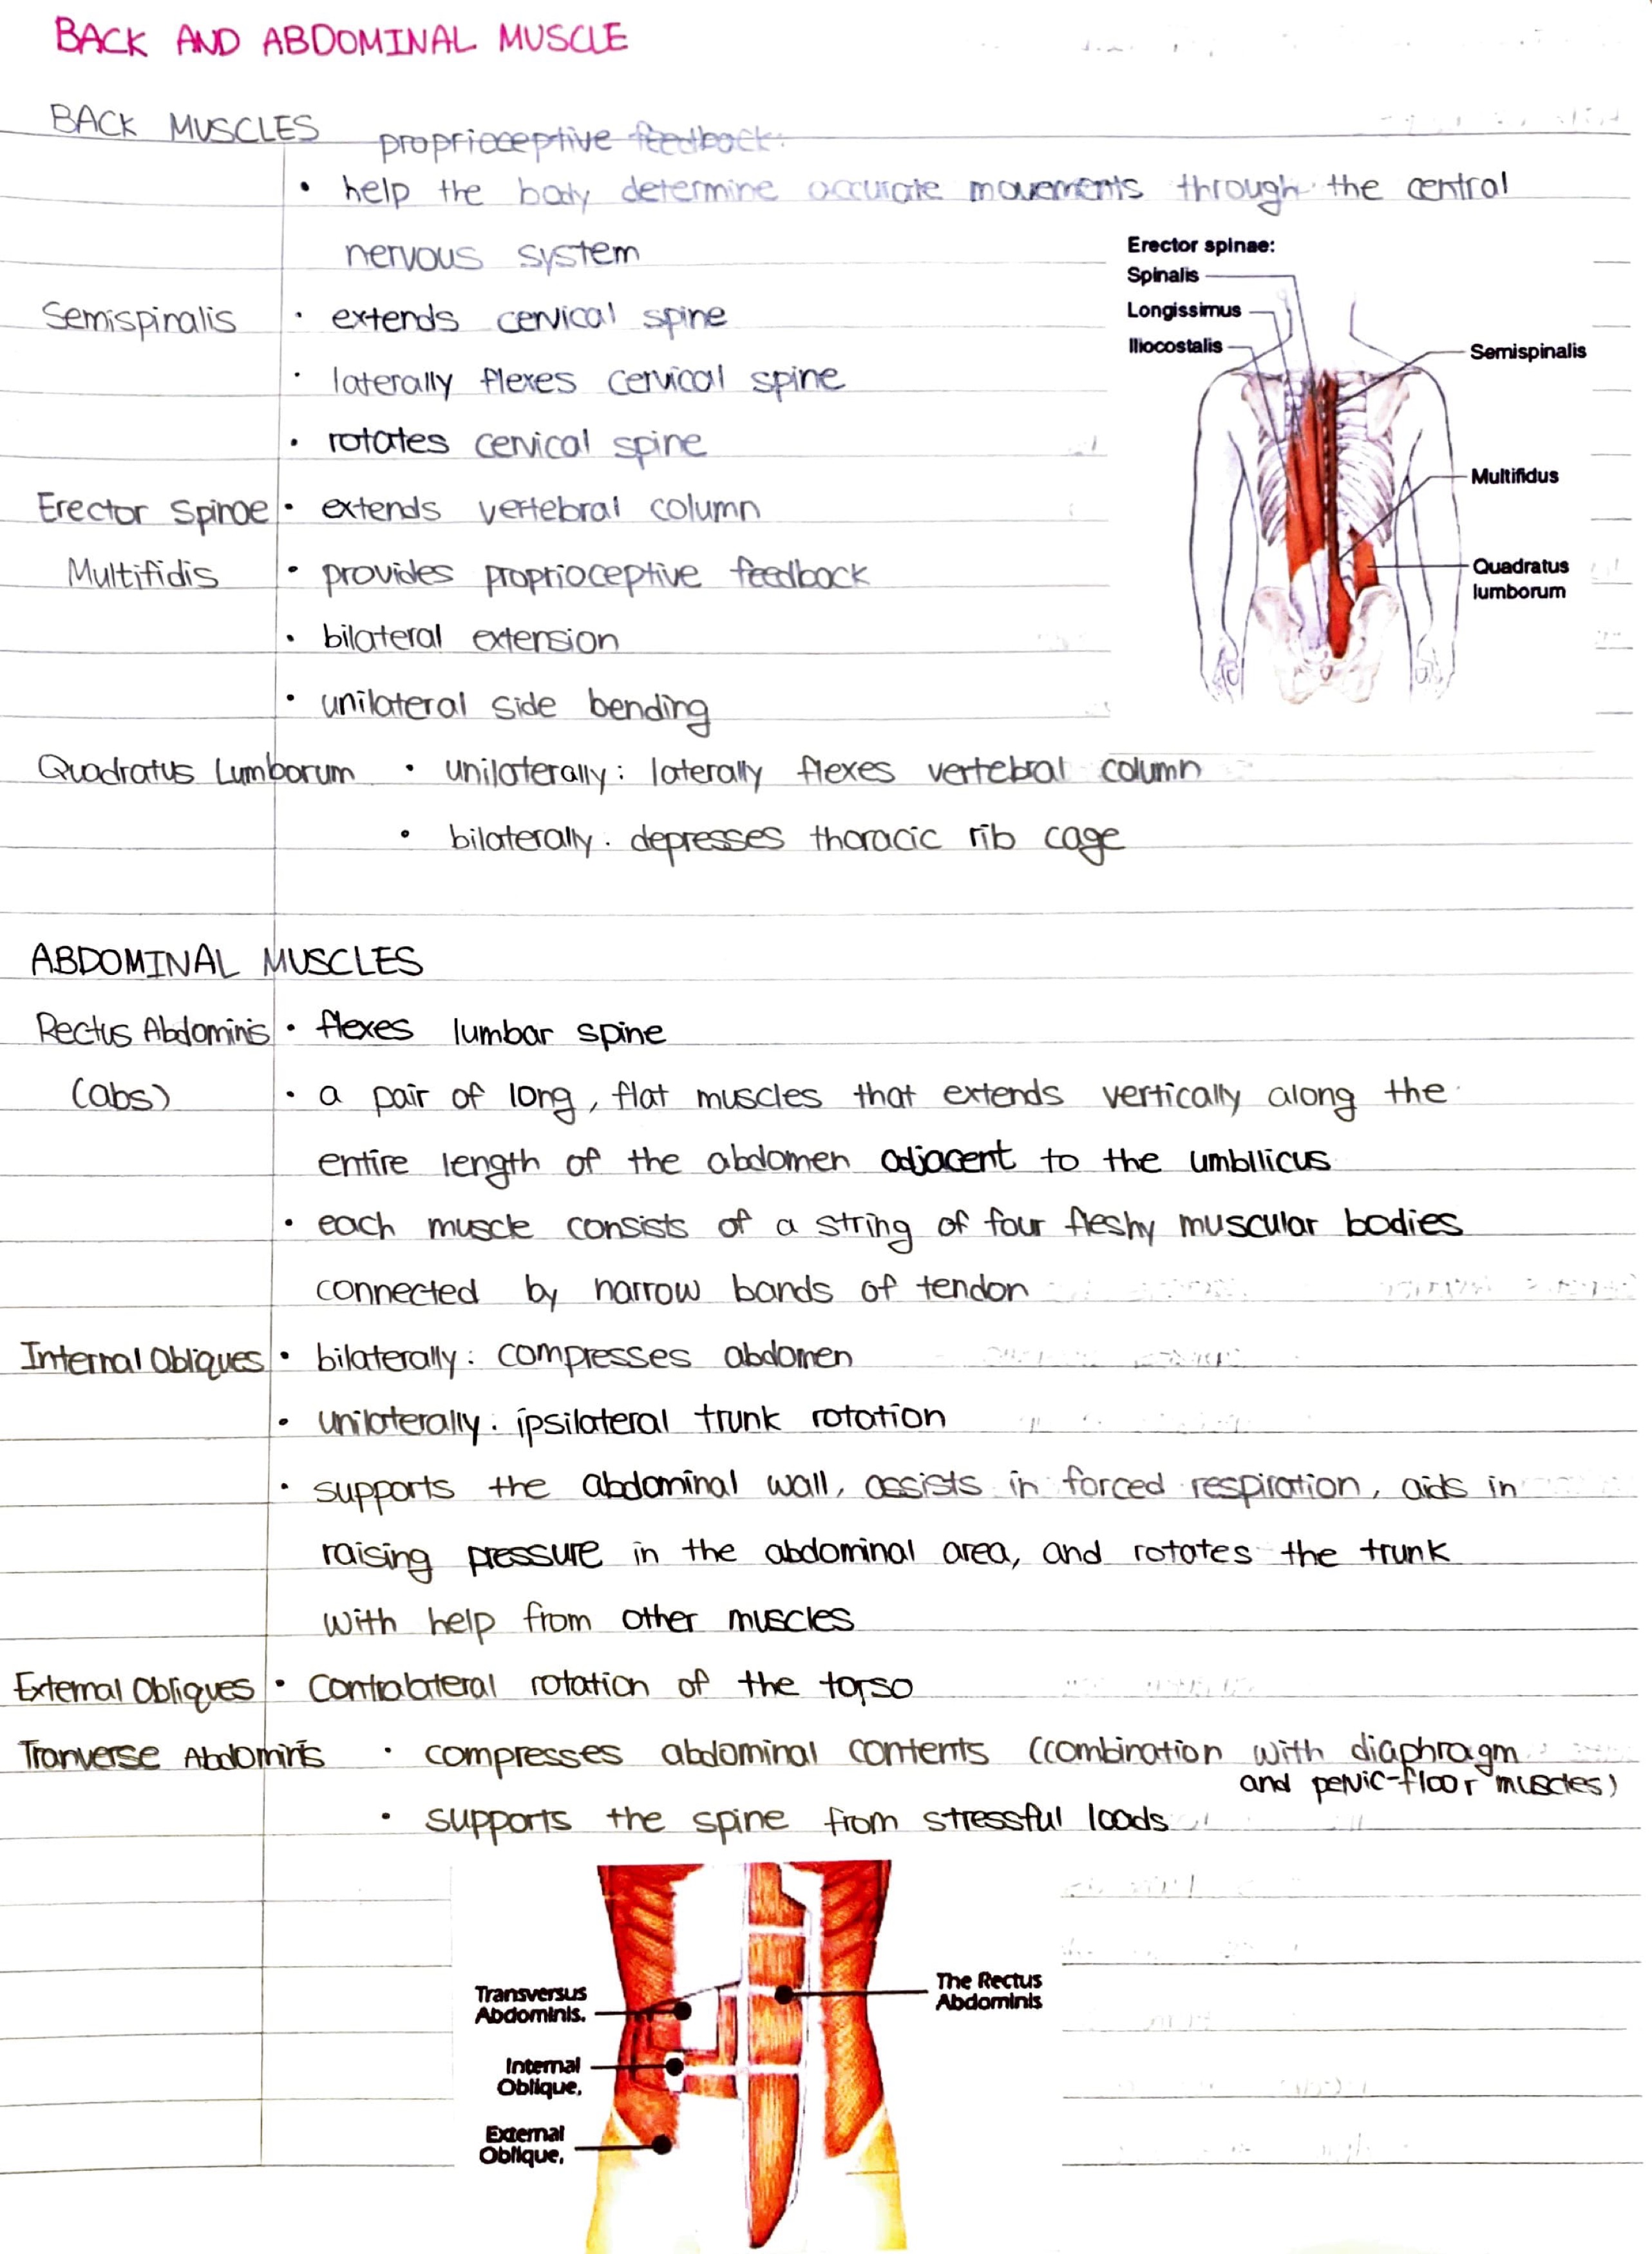 BACK AND ABDOMINAL MUSCLE
BACK MUSCLES
proprioceptive feedback:
• help the body determine accurate movements through the central
nervous system
Semispinalis • extends cervical spine
• laterally flexes cervical spine
• rotates cervical spine
Erector Spinae • extends vertebral column
Multifidis • provides proprioceptive feedback
• bilateral extension
• unilateral side bending
Erector spinae:
Spinalis
Longissimus
Iliocostalis
Semispinalis
Multifidus
Quadratus
lumborum
Quadratus Lumborum • unilaterally: laterally flexes vertebral column
• bilaterally. depresses thoracic rib cage
ABDOMINAL MUSCLES
Rectus Abdominis • flexes lumbar spine
(abs) • a pair of long, flat muscles that extends vertically along the
entire length of the abdomen adjacent to the umbilicus
• each muscle consists of a string of four fleshy muscular bodies
connected by narrow bands of tendon
Internal Obliques • bilaterally: compresses abdomen
• unilaterally. ipsilateral trunk rotation
• supports the abdominal wall, assists in forced respiration, aids in
raising pressure in the abdominal area, and rotates the trunk
with help from other muscles
External Obliques • Contralateral rotation of the torso
Tranverse Abdominis • compresses abdominal contents (combination with diaphragm
and pelvic-floor muscles)
• supports the spine from stressful loads
Transversus
Abdominis.
Internal
Oblique.
External
Oblique.
The Rectus
Abdominis